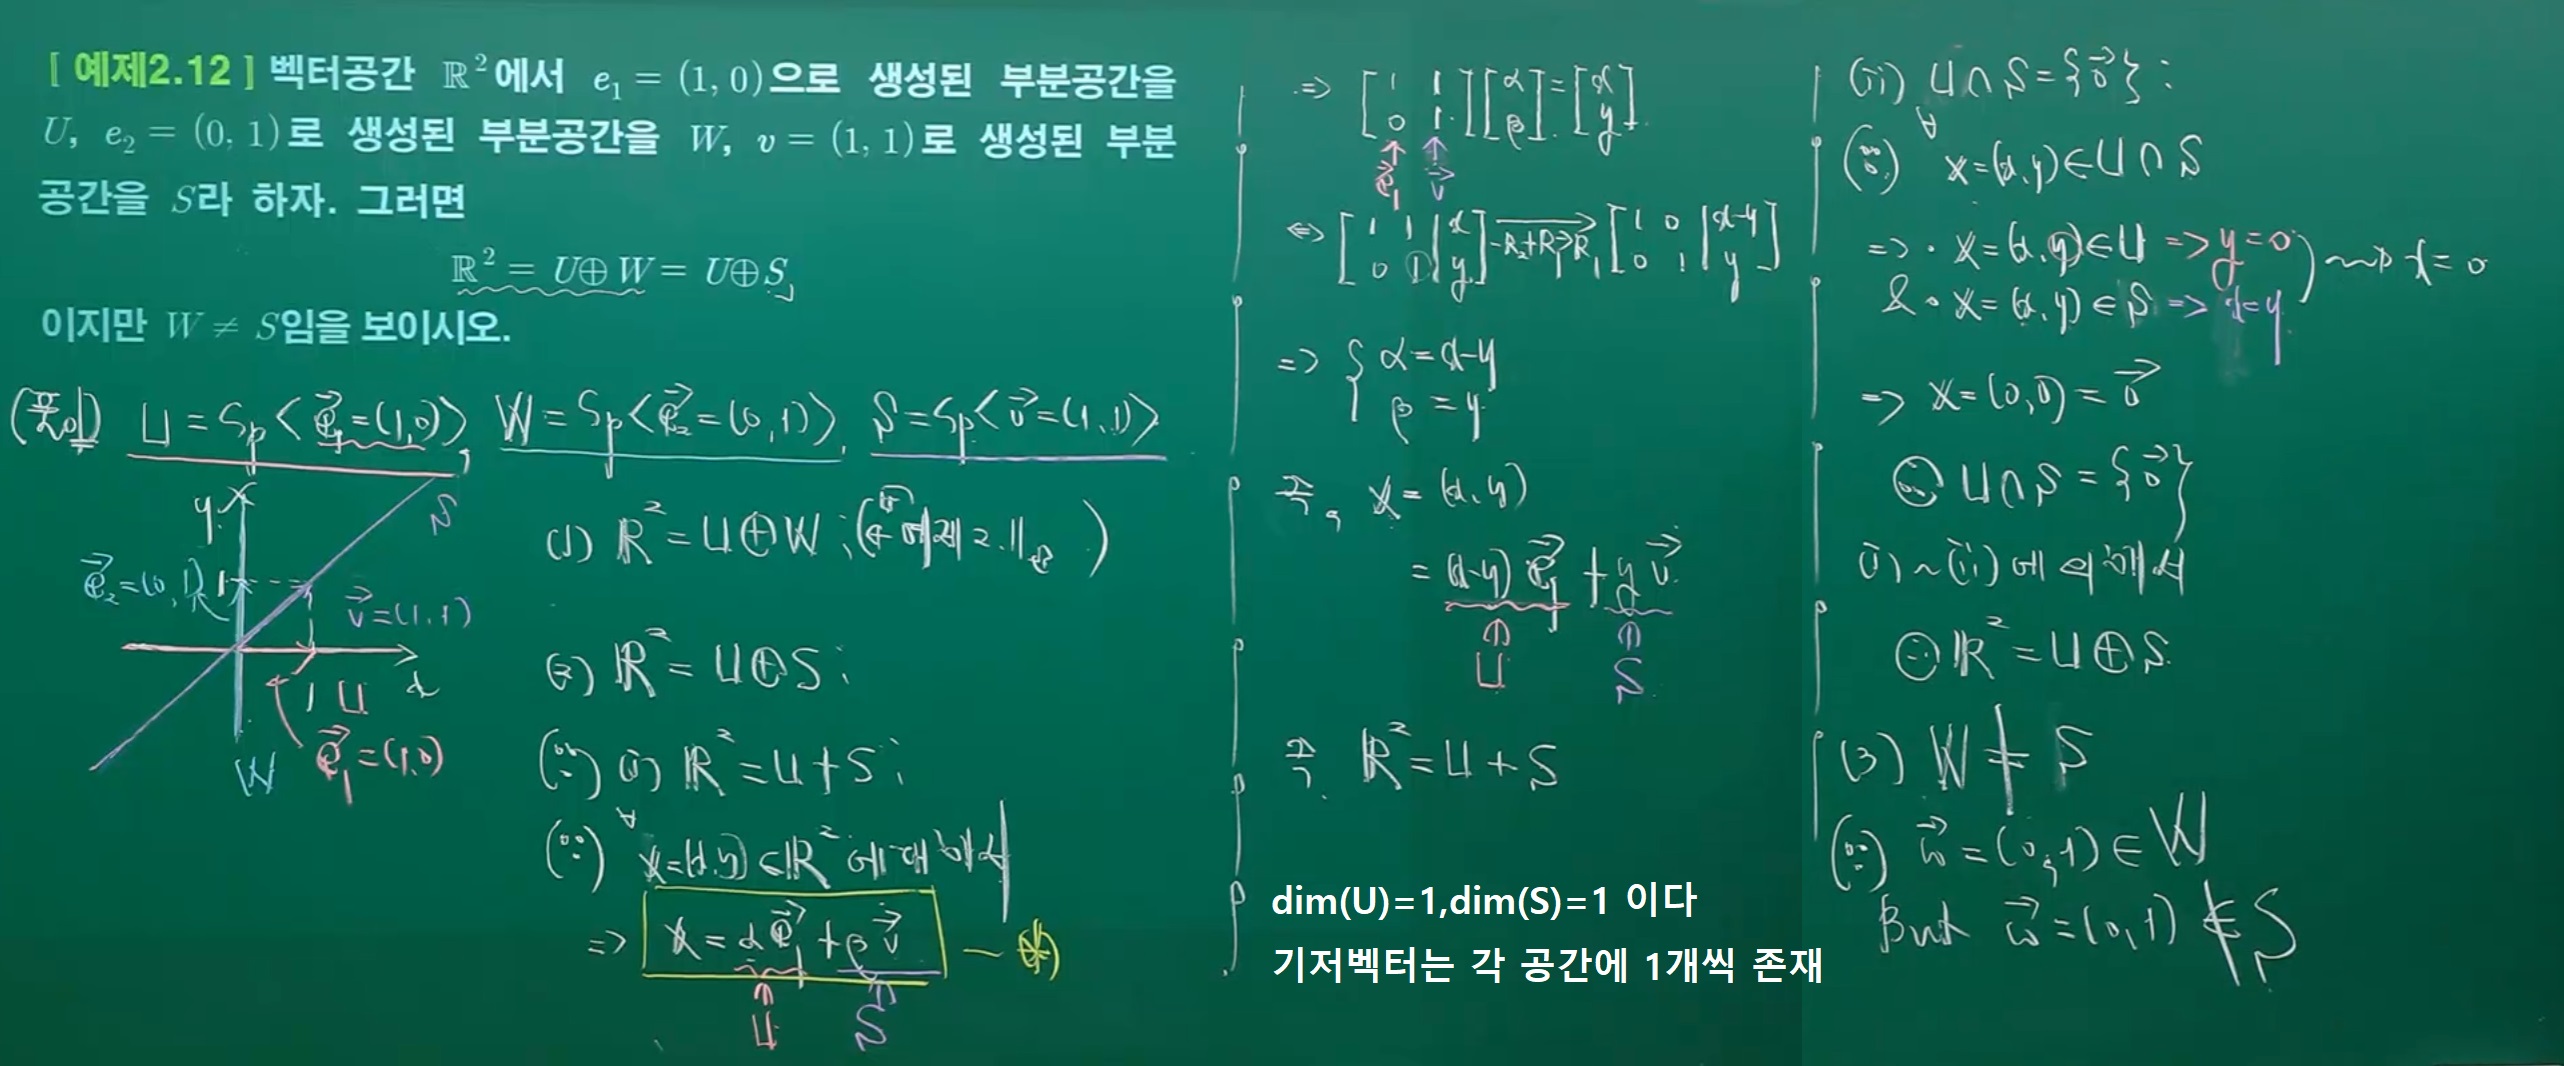 [ 예제2.12 ] 벡터공간 ℝ²에서 e₁ = (1, 0)으로 생성된 부분공간을
U, e₂ = (0, 1)로 생성된 부분공간을 W, v = (1, 1)로 생성된 부분
공간을 S라 하자. 그러면
ℝ² = U⊕W = U⊕S
이지만 W ≠ S임을 보이시오.
(풀이) U = Sp<e⃗₁=(1,0)>, W = Sp<e⃗₂=(0,1)>, S = Sp<v⃗=(1,1)>
y
S
e⃗₂=(0,1)
1
v⃗=(1,1)
1 U x
W
e⃗₁=(1,0)
(1) ℝ² = U⊕W ; (∵ 예제2.11)
(2) ℝ² = U⊕S ;
(∵) (i) ℝ² = U+S ;
(∵) ∀x=(x,y)∈ℝ²에 대해서
=> x = αe⃗₁ + βv⃗ — (*)
U S
=> [1 1; 0 1][α; β] = [x; y]
e⃗₁ v⃗
<=> [1 1 | x; 0 1 | y] -R₂+R₁→R₁ [1 0 | x-y; 0 1 | y]
=> { α = x-y
β = y
즉, x = (x,y)
= (x-y)e⃗₁ + yv⃗
U S
즉, ℝ² = U+S
dim(U)=1,dim(S)=1 이다
기저벡터는 각 공간에 1개씩 존재
(ii) U∩S = {0⃗} ;
(∵) ∀x=(x,y)∈U∩S
=> · x=(x,y)∈U => y=0
& · x=(x,y)∈S => x=y
⇝ x=0
=> x=(0,0)=0⃗
∴ U∩S = {0⃗}
(i)~(ii)에 의해서
∴ ℝ² = U⊕S
(3) W ≠ S
(∵) w⃗=(0,1)∈W
But w⃗=(0,1)∉S